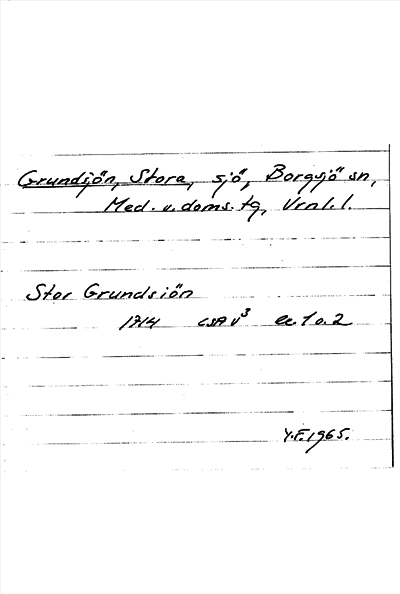 Grundsjön, Stora, sjö, Borgsjö sn,
Med. v. doms. tg, Vrnl. l.
Stor Grundsiön
1714 CSA V³ ec. 1 o. 2
Y.F. 1965.